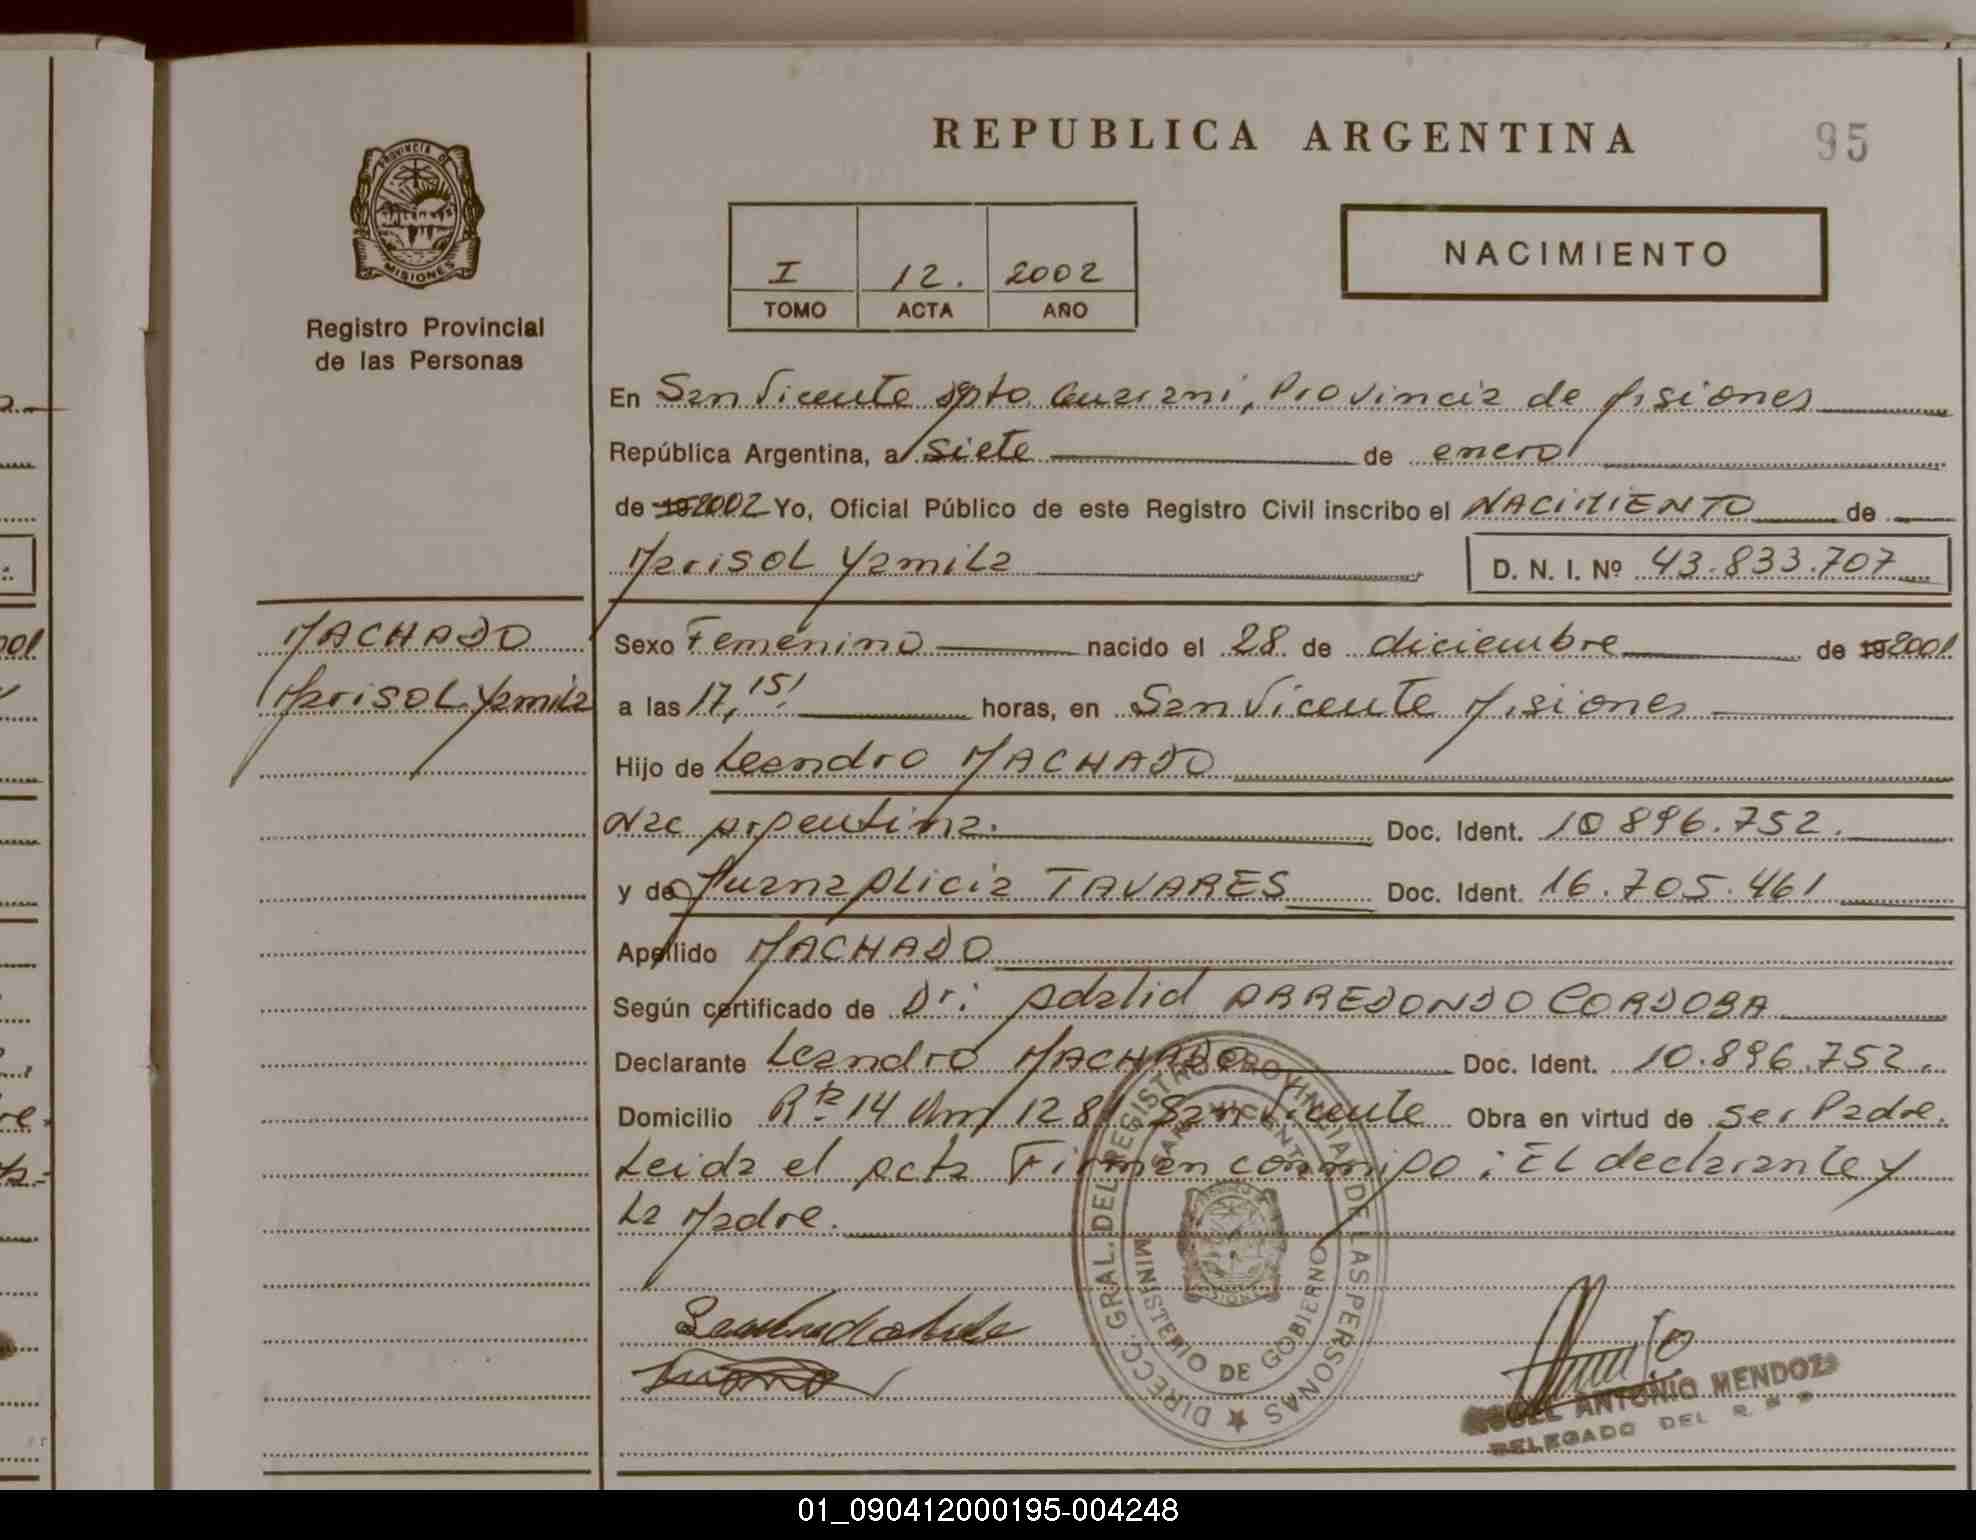 REPUBLICA ARGENTINA
95
PROVINCIA DE
MISIONES
Registro Provincial
de las Personas
I 12. 2002
TOMO ACTA AÑO
NACIMIENTO
En San Vicente Dpto Guarani, Provincia de Misiones
República Argentina, a siete de enero
de 19 2002 Yo, Oficial Público de este Registro Civil inscribo el NACIMIENTO de
Marisol Yamila D. N. I. Nº 43.833.707
MACHADO
Marisol Yamila
Sexo Femenino nacido el 28 de diciembre de 19 2001
a las 17,15' horas, en San Vicente Misiones
Hijo de Leandro MACHADO
Nac Argentina. Doc. Ident. 10 896.752.
y de Juana Alicia TAVARES Doc. Ident. 16.705.461
Apellido MACHADO
Según certificado de Dr: Adalid ARREDONDO CORDOBA
Declarante Leandro MACHADO Doc. Ident. 10.896.752.
Domicilio Rta 14 Km 1281 San Vicente Obra en virtud de ser Padre.
Leida el acta Firman conmigo: El declarante y
La Madre.
DIRECC. GRAL. DEL REGISTRO PROVINCIAL DE LAS PERSONAS
SAN VICENTE
MINISTERIO DE GOBIERNO
ANTONIO MENDOZA
DELEGADO DEL R.
01_090412000195-004248